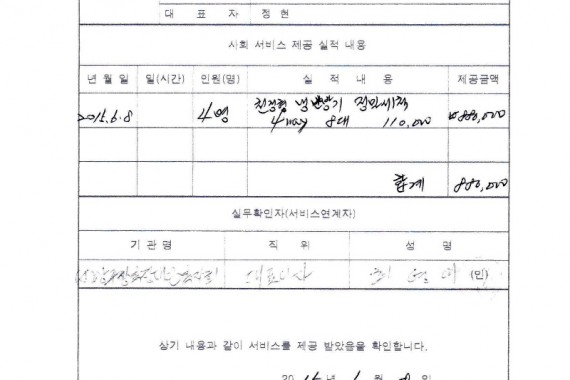 대 표 자 정 현
사회 서비스 제공 실적 내용
년 월 일 일(시간) 인원(명) 실 적 내 용 제공금액
2015.6.8 4명 천정형 냉난방기 정밀세척 880,000
4way 8대 110,000
합계 880,000
실무확인자(서비스연계자)
기 관 명 직 위 성 명
대표이사 (인)
상기 내용과 같이 서비스를 제공 받았음을 확인합니다.
20 15 년 월 일